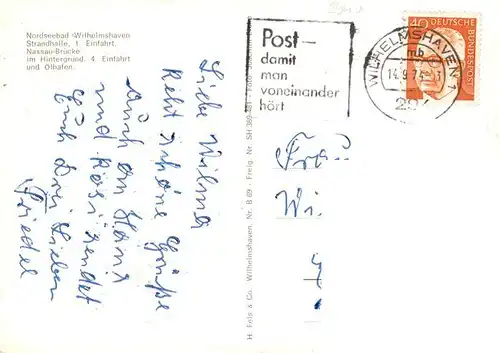 Nordseebad Wilhelmshaven
Strandhalle, 1. Einfahrt,
Nassau-Brücke
im Hintergrund, 4. Einfahrt
und Ölhafen.
Liebe Wilma
Recht schöne Grüße
auch an Hans
und Rosi sendet
Euch Drei Lieben
Friedel
H. Fols & Co. Wilhelmshaven, Nr. B 69 · Freig. Nr. SH 369
Post –
damit
man
voneinander
hört
WILHELMSHAVEN 1
mb
14.9.7
29
40 DEUTSCHE
BUNDESPOST
Frau
Wi.